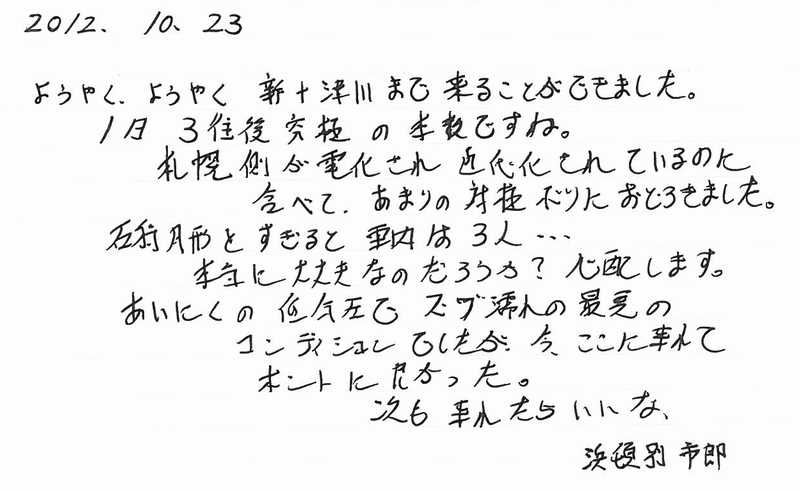 2012. 10. 23
ようやく、ようやく 新十津川まで 来ることができました。
1日 3往復 究極 の 本数ですね。
札幌 側が 電化され 近代化されているのに
含べて、あまりの 対極 ボリに おどろきました。
石狩月形を すぎると 車内は 3人…
本当に 大丈夫なのだろうか? 心配します。
あいにくの 低気圧で ズブ濡れの 最悪の
コンディション でしたが、今、ここに 来れて
ホントに 良かった。
次も 来れたら いいな、
浜頓別 市郎